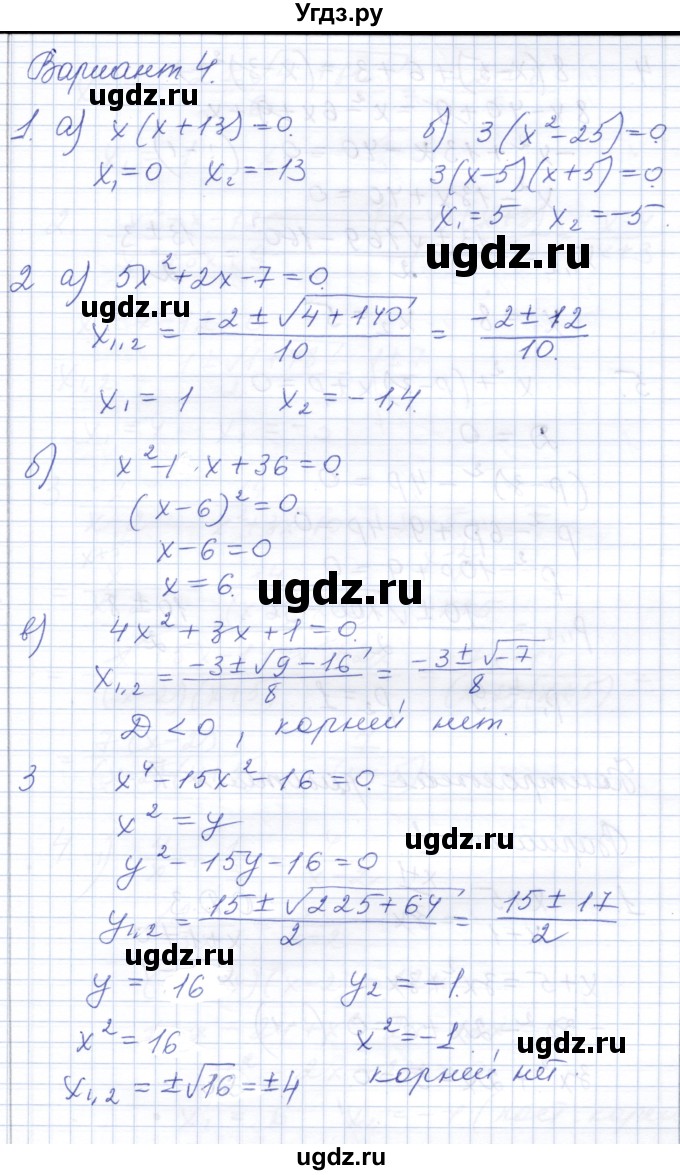 Угдз.ру
Вариант 4.
ugdz.ru
1. а) x(x+13)=0. б) 3(x²-25)=0
x₁=0 x₂=-13 3(x-5)(x+5)=0
x₁=5 x₂=-5.
ugdz.ru
2 а) 5x²+2x-7=0.
x₁,₂ = (-2±√(4+140))/10 = (-2±12)/10.
x₁ = 1 x₂ = -1,4.
б) x²-1 x+36=0.
(x-6)²=0.
x-6=0
x=6.
ugdz.ru
в) 4x²+3x+1=0.
x₁,₂ = (-3±√(9-16))/8 = (-3±√-7)/8
D<0, корней нет.
3 x⁴-15x²-16=0.
x²=y
ugdz.ru
y²-15y-16=0
y₁,₂ = (15±√(225+64))/2 = (15±17)/2
ugdz.ru
y = 16 y₂=-1.
x²=16 x²=-1,
ugdz.ru
x₁,₂=±√16=±4 корней нет.
ugdz.ru